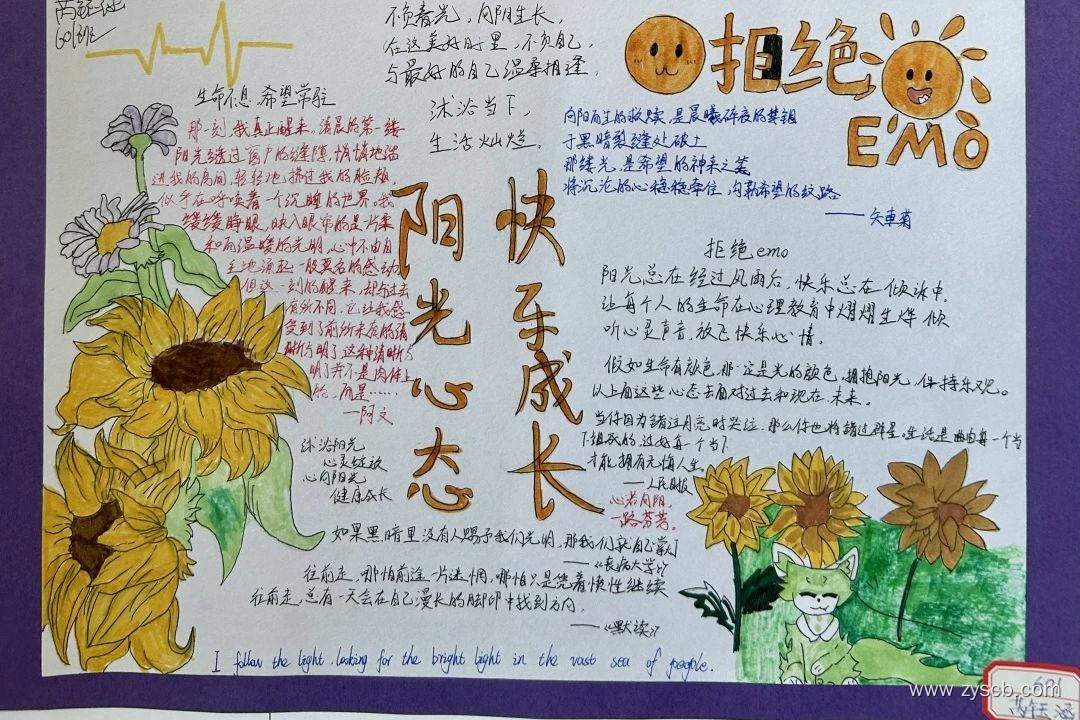 不负春光，向阳生长，
在这美好时里，不负自己，
与最好的自己温柔相逢，
沐浴当下，
生活灿烂。
拒绝
EMO
生命不息 希望常驻
那一刻，我真正醒来。清晨的第一缕
阳光透过窗户的缝隙，悄悄地溜
进我的房间，轻轻地拂过我的脸颊，
似乎在呼唤着一个沉睡的世界。我
缓缓睁眼，映入眼帘的是一片柔
和而温暖的光明，心中不由自
主地涌起一股莫名的感动
但这一刻的醒来，却与过去
有所不同，它让我感
受到了前所未有的清
晰与明了这种清晰与
明了并不是肉体上
的，而是……
—阿文
向阳而生的救赎，是晨曦碎夜的
于黑暗裂缝处破土
那缕光，是希望的神来之笔
将沉沦的心稳稳牵住，勾勒希望的纹路
——矢車菊
阳光心态
快乐成长
拒绝emo
阳光总在经过风雨后，快乐总在倾诉中，
让每个人的生命在心理教育中熠熠生烨 倾
听心灵声音，放飞快乐心情。
假如生命有颜色，那一定是光的颜色，拥抱阳光，保持乐观。
以上面这些心态去面对过去和现在、未来。
当你因为错过月亮时哭泣，那么你也将错过群星。生活是由每一个当
下组成的，过好每一个当下
才能拥有无悔人生。
—人民日报
心若向阳，
一路芬芳。
沐浴阳光
心灵绽放
心向阳光
健康成长
如果黑暗里没有人赐予我们光明，那我们就自己
往前走，哪怕前途一片迷惘，哪怕只是凭着惯性继续
往前走，总有一天会在自己漫长的脚印中找到方向。
——《默读》
I follow the light, looking for the bright light in the vast sea of people.
601
www.zyscb.com